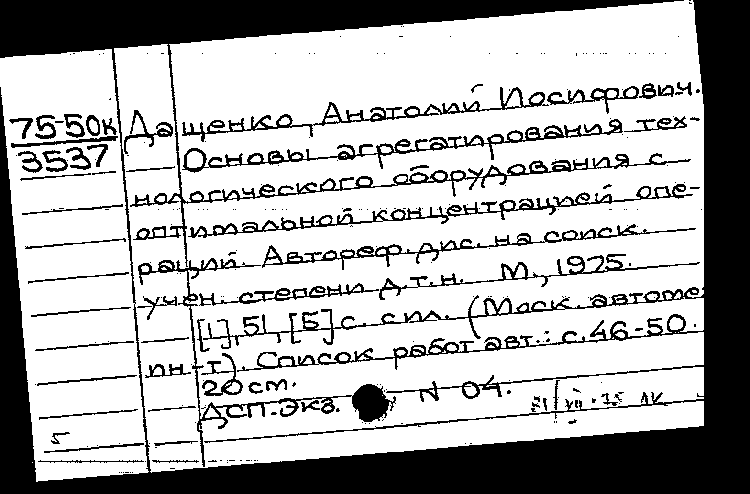 75-50к Дащенко, Анатолий Иосифович.
3537 Основы агрегатирования тех-
нологического оборудования с
оптимальной концентрацией опе-
раций. Автореф. дис. на соиск.
учен. степени д.т.н. М., 1975.
[1], 51, [5] с. с ил. (Моск. автомех.
ин-т). Список работ авт.: с. 46-50.
20 см.
ДСП. Экз. N 04.
5